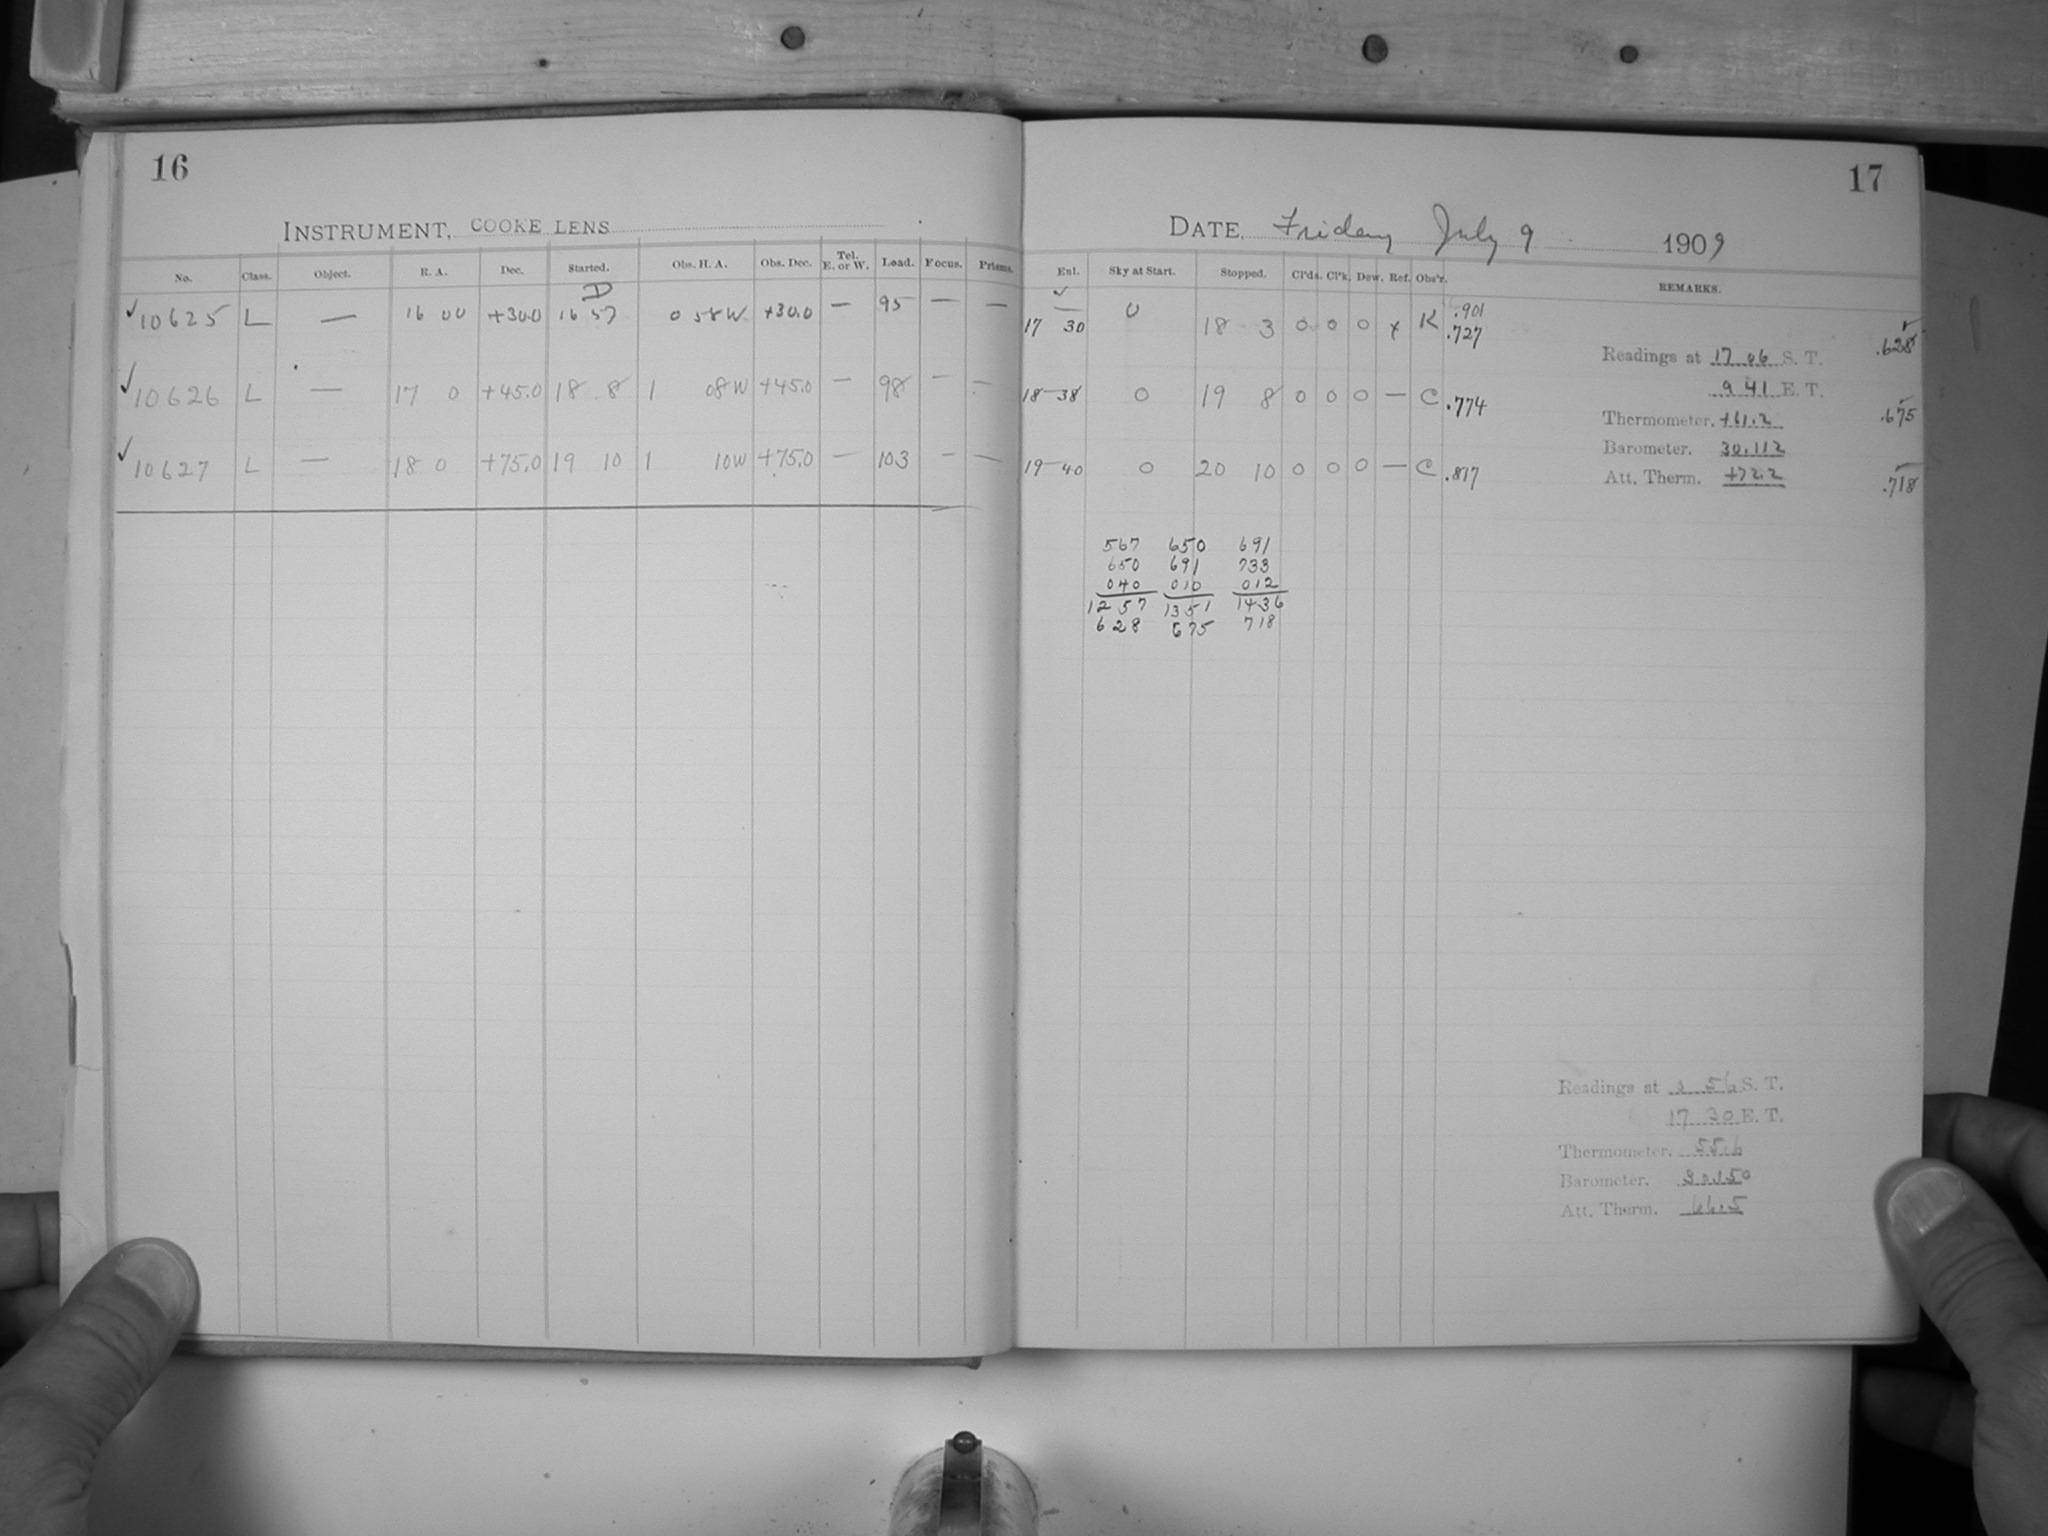 16
INSTRUMENT, COOKE LENS
No. Class. Object. R. A. Dec. Started. Obs. H. A. Obs. Dec. Tel. E. or W. Load. Focus. Prisms.
D
✓10625 L — 16 00 +30.0 16 57 0 58W +30.0 — 95 — —
✓10626 L — 17 0 +45.0 18 8 1 08W +45.0 — 98 — —
✓10627 L — 18 0 +75.0 19 10 1 10W +75.0 — 103 — —
17
DATE, Friday July 9 1909
Enl. Sky at Start. Stopped. Cl'ds. Cl'k. Dew. Ref. Obs'r. REMARKS.
✓
17 30 0 18 3 0 0 0 x K .901
.727
.628
Readings at 17 06 S. T.
9 41 E. T.
18 38 0 19 8 0 0 0 — C .774
Thermometer. +61.2 .675
Barometer. 30.112
19 40 0 20 10 0 0 0 — C .817
Att. Therm. +72.2 .718
567 650 691
650 691 733
040 010 012
1257 1351 1436
628 675 718
Readings at 56 S. T.
17 30 E. T.
Thermometer. 55.6
Barometer. 30.150
Att. Therm. 66.5